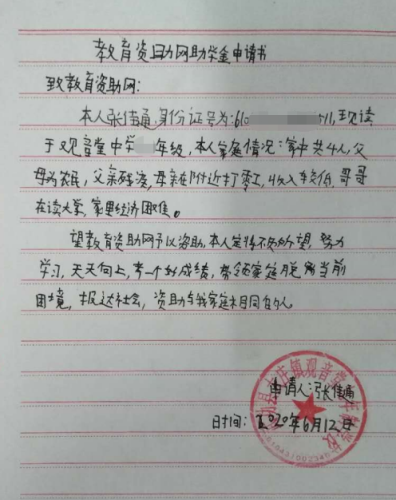 教育资助网助学金申请书
致教育资助网:
本人张伟通,身份证号为:610 11,现读
于观音堂中学 年级,本人家庭情况:家中共4人,父
母为农民,父亲残疾,母亲在附近打零工,收入较低,哥哥
在读大学,家里经济困难。
望教育资助网予以资助,本人定将不负所望,努力
学习,天天向上,考一个好成绩,带领家庭脱离当前
困境,报达社会,资助与我家庭相同的人
申请人:张伟通
时间:2020年6月12日
镇观音堂